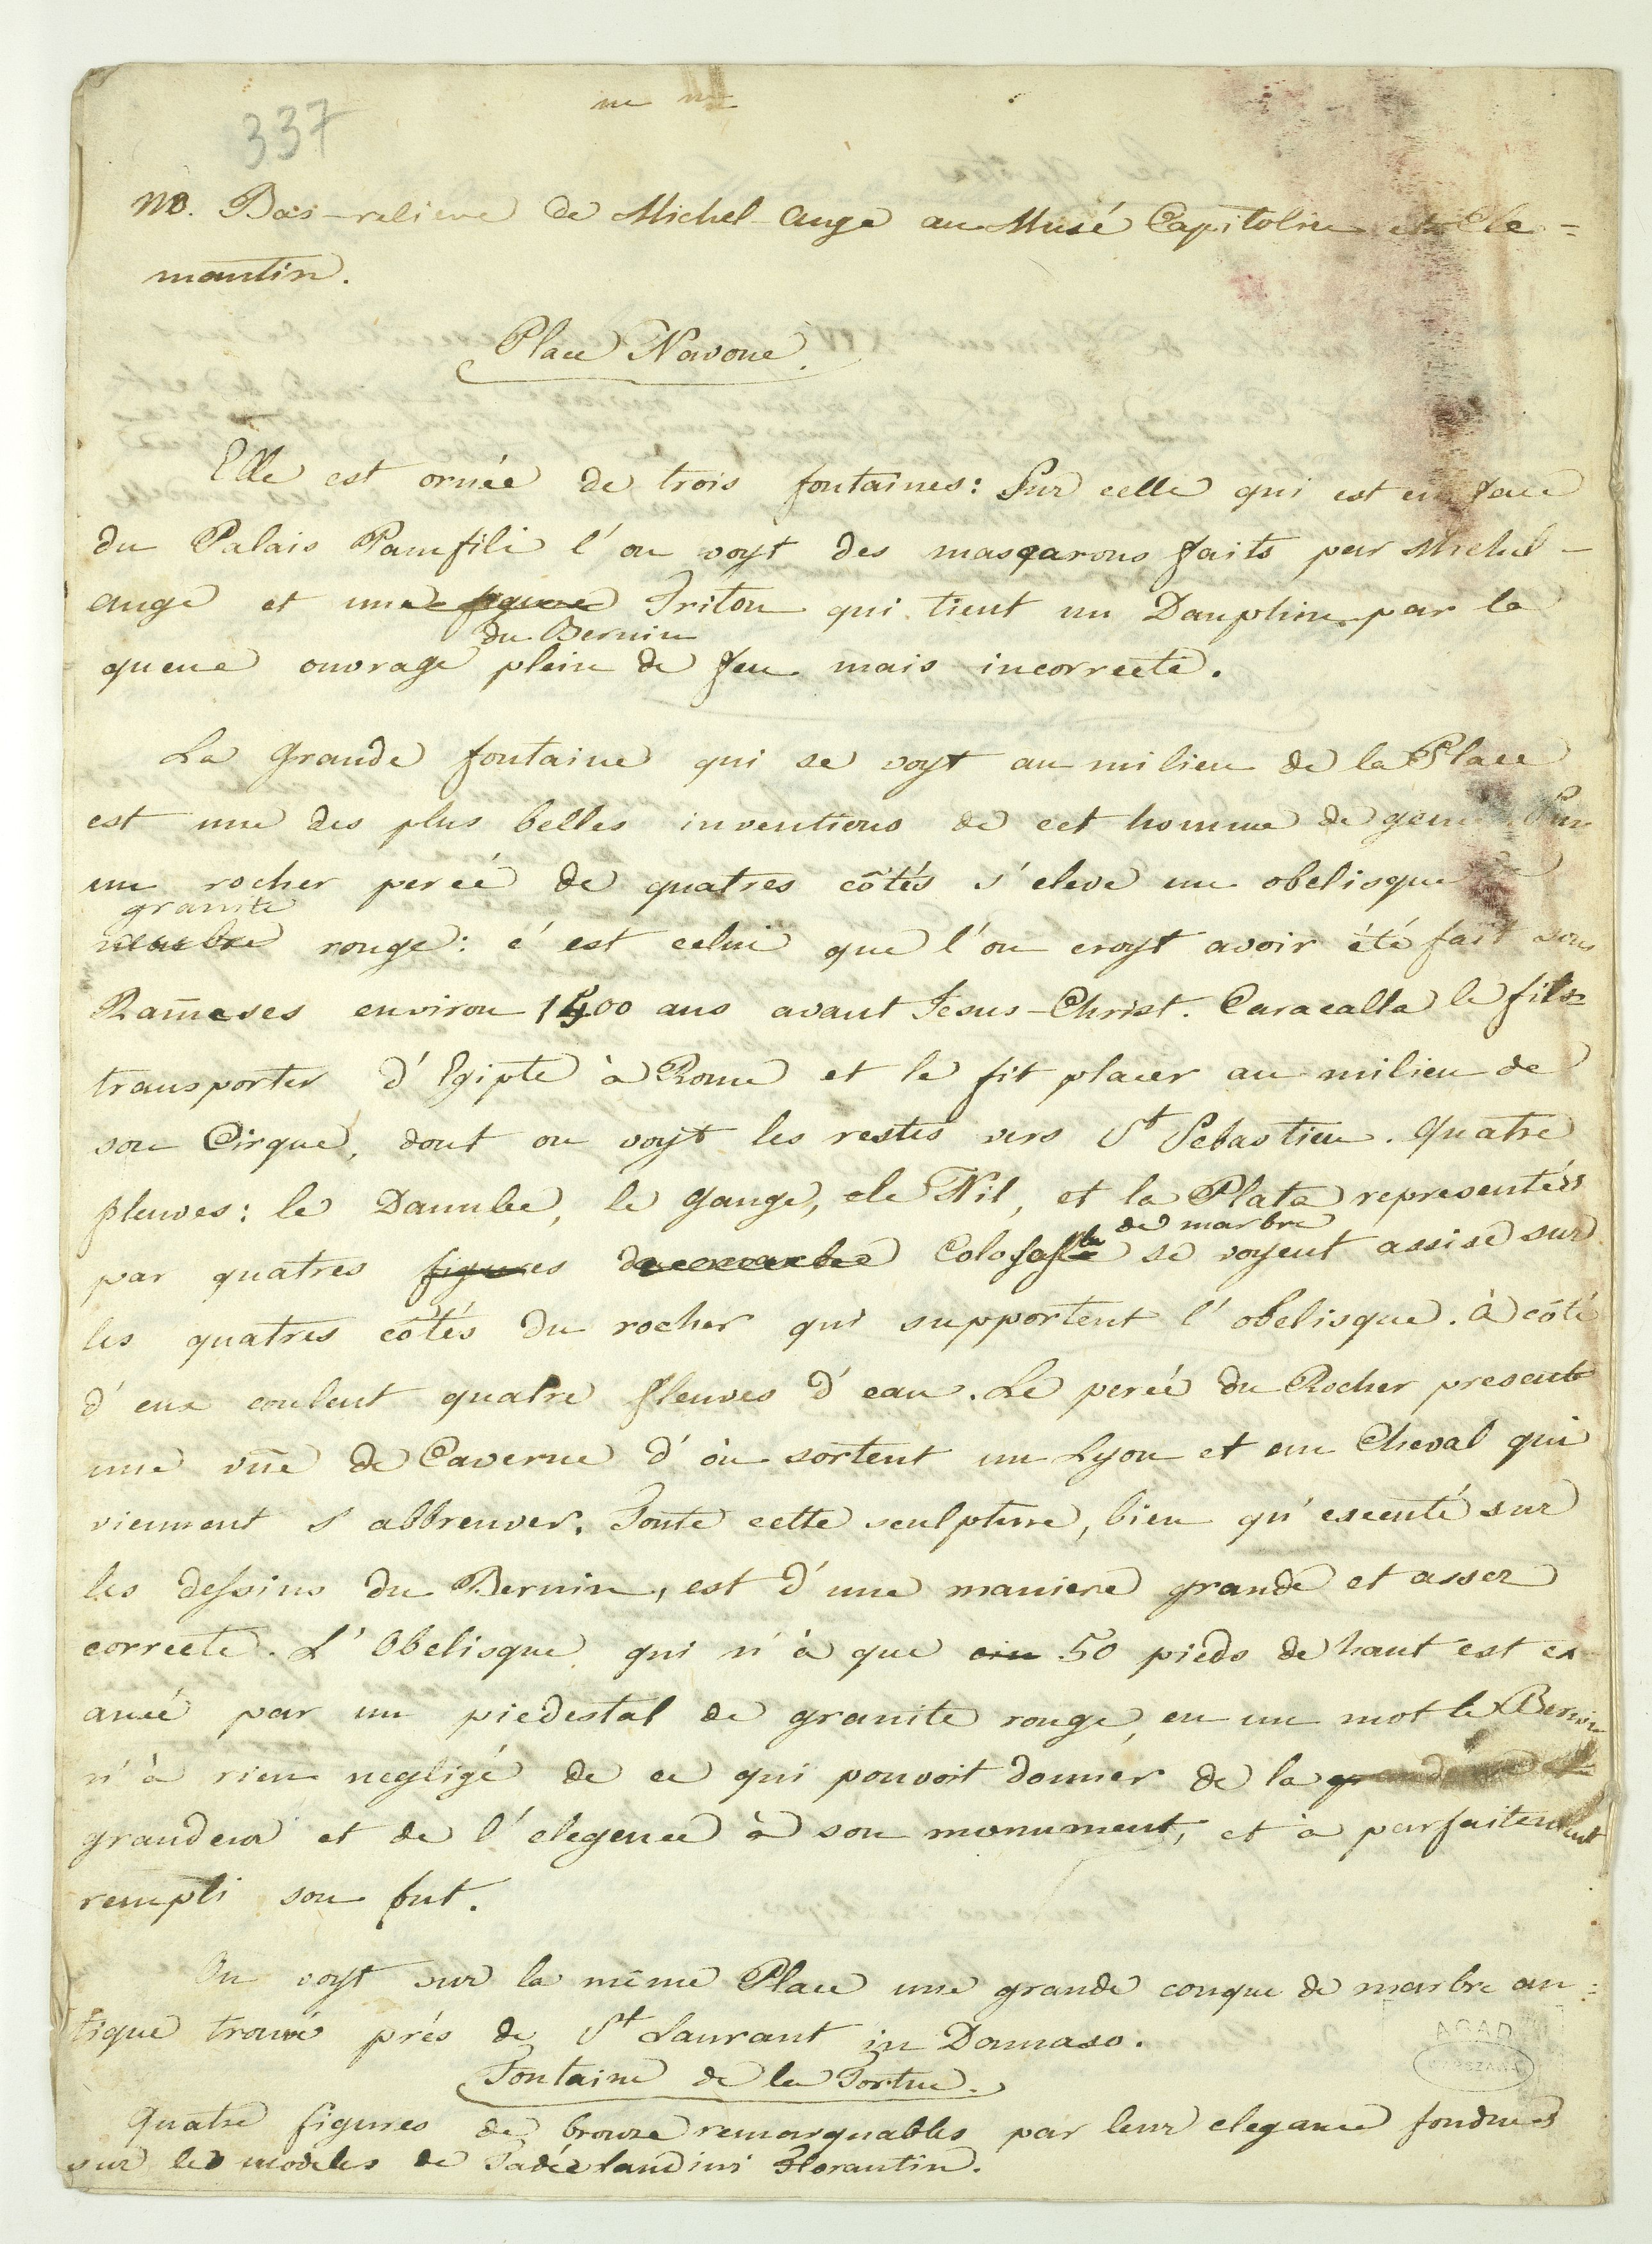 337
NB. Bas-relieve de Michel Ange au Musé Capitolin et Cle=
mantin.
Place Navone.
Elle est ornée de trois fontaines: Sur celle qui est en face
du Palais Pamfili l'on voyt des masqarons faits par Michel-
ange et une figure Triton qui tient un Dauphin par la
du Bernin
queue ouvrage plein de feu mais incorrecte.
La Grande fontaine qui se voyt au milieu de la Place
est une des plus belles inventions de cet homme de genie. Sur
un rocher percé de quatres côtés s'eleve un obelisque de
granite
marbre rouge: c'est celui que l'on croyt avoir été fait sous
Rameses environ 1500 ans avant Jesus-Christ. Caracalla le fils
transporter d'Egipte à Rome et le fit placer au milieu de
son Cirque, dont on voyt les restes vers St Sebastien. Quatre
fleuves: le Danube, le Gange, le Nil, et la Plata representés
de marbre
par quatres figures de marbre Colossale se voyent assise sur
les quatres côtés du rocher qui supportent l'obelisque. à côté
d'eux coulent quatre fleuves d'eau. Le percé du Rocher presente
une vüe de Caverne d'où sortent un Lyon et un Cheval qui
viennent s'abbreuver. Toute cette sculpture, bien qu'executé sur
les dessins du Bernin, est d'une maniere grande et assez
correcte. L'Obelisque qui n'à que cin 50 pieds de haut est ex
aucé par un piedestal de granite rouge, en un mot le Bernin
n'à rien negligé de ce qui pouvoit donner de la
grandeur et de l'elegence à son monument, et à parfaitement
rempli son but.
On voyt sur la même Place une grande conque de marbre an=
tique trouvé près de St Laurant in Domaso.
Fontaine de la Tortue.
Quatre figures de bronze remarquables par leur elegance fondues
sur les modeles de Tadée landini Florantin.
AGAD
WARSZAWA